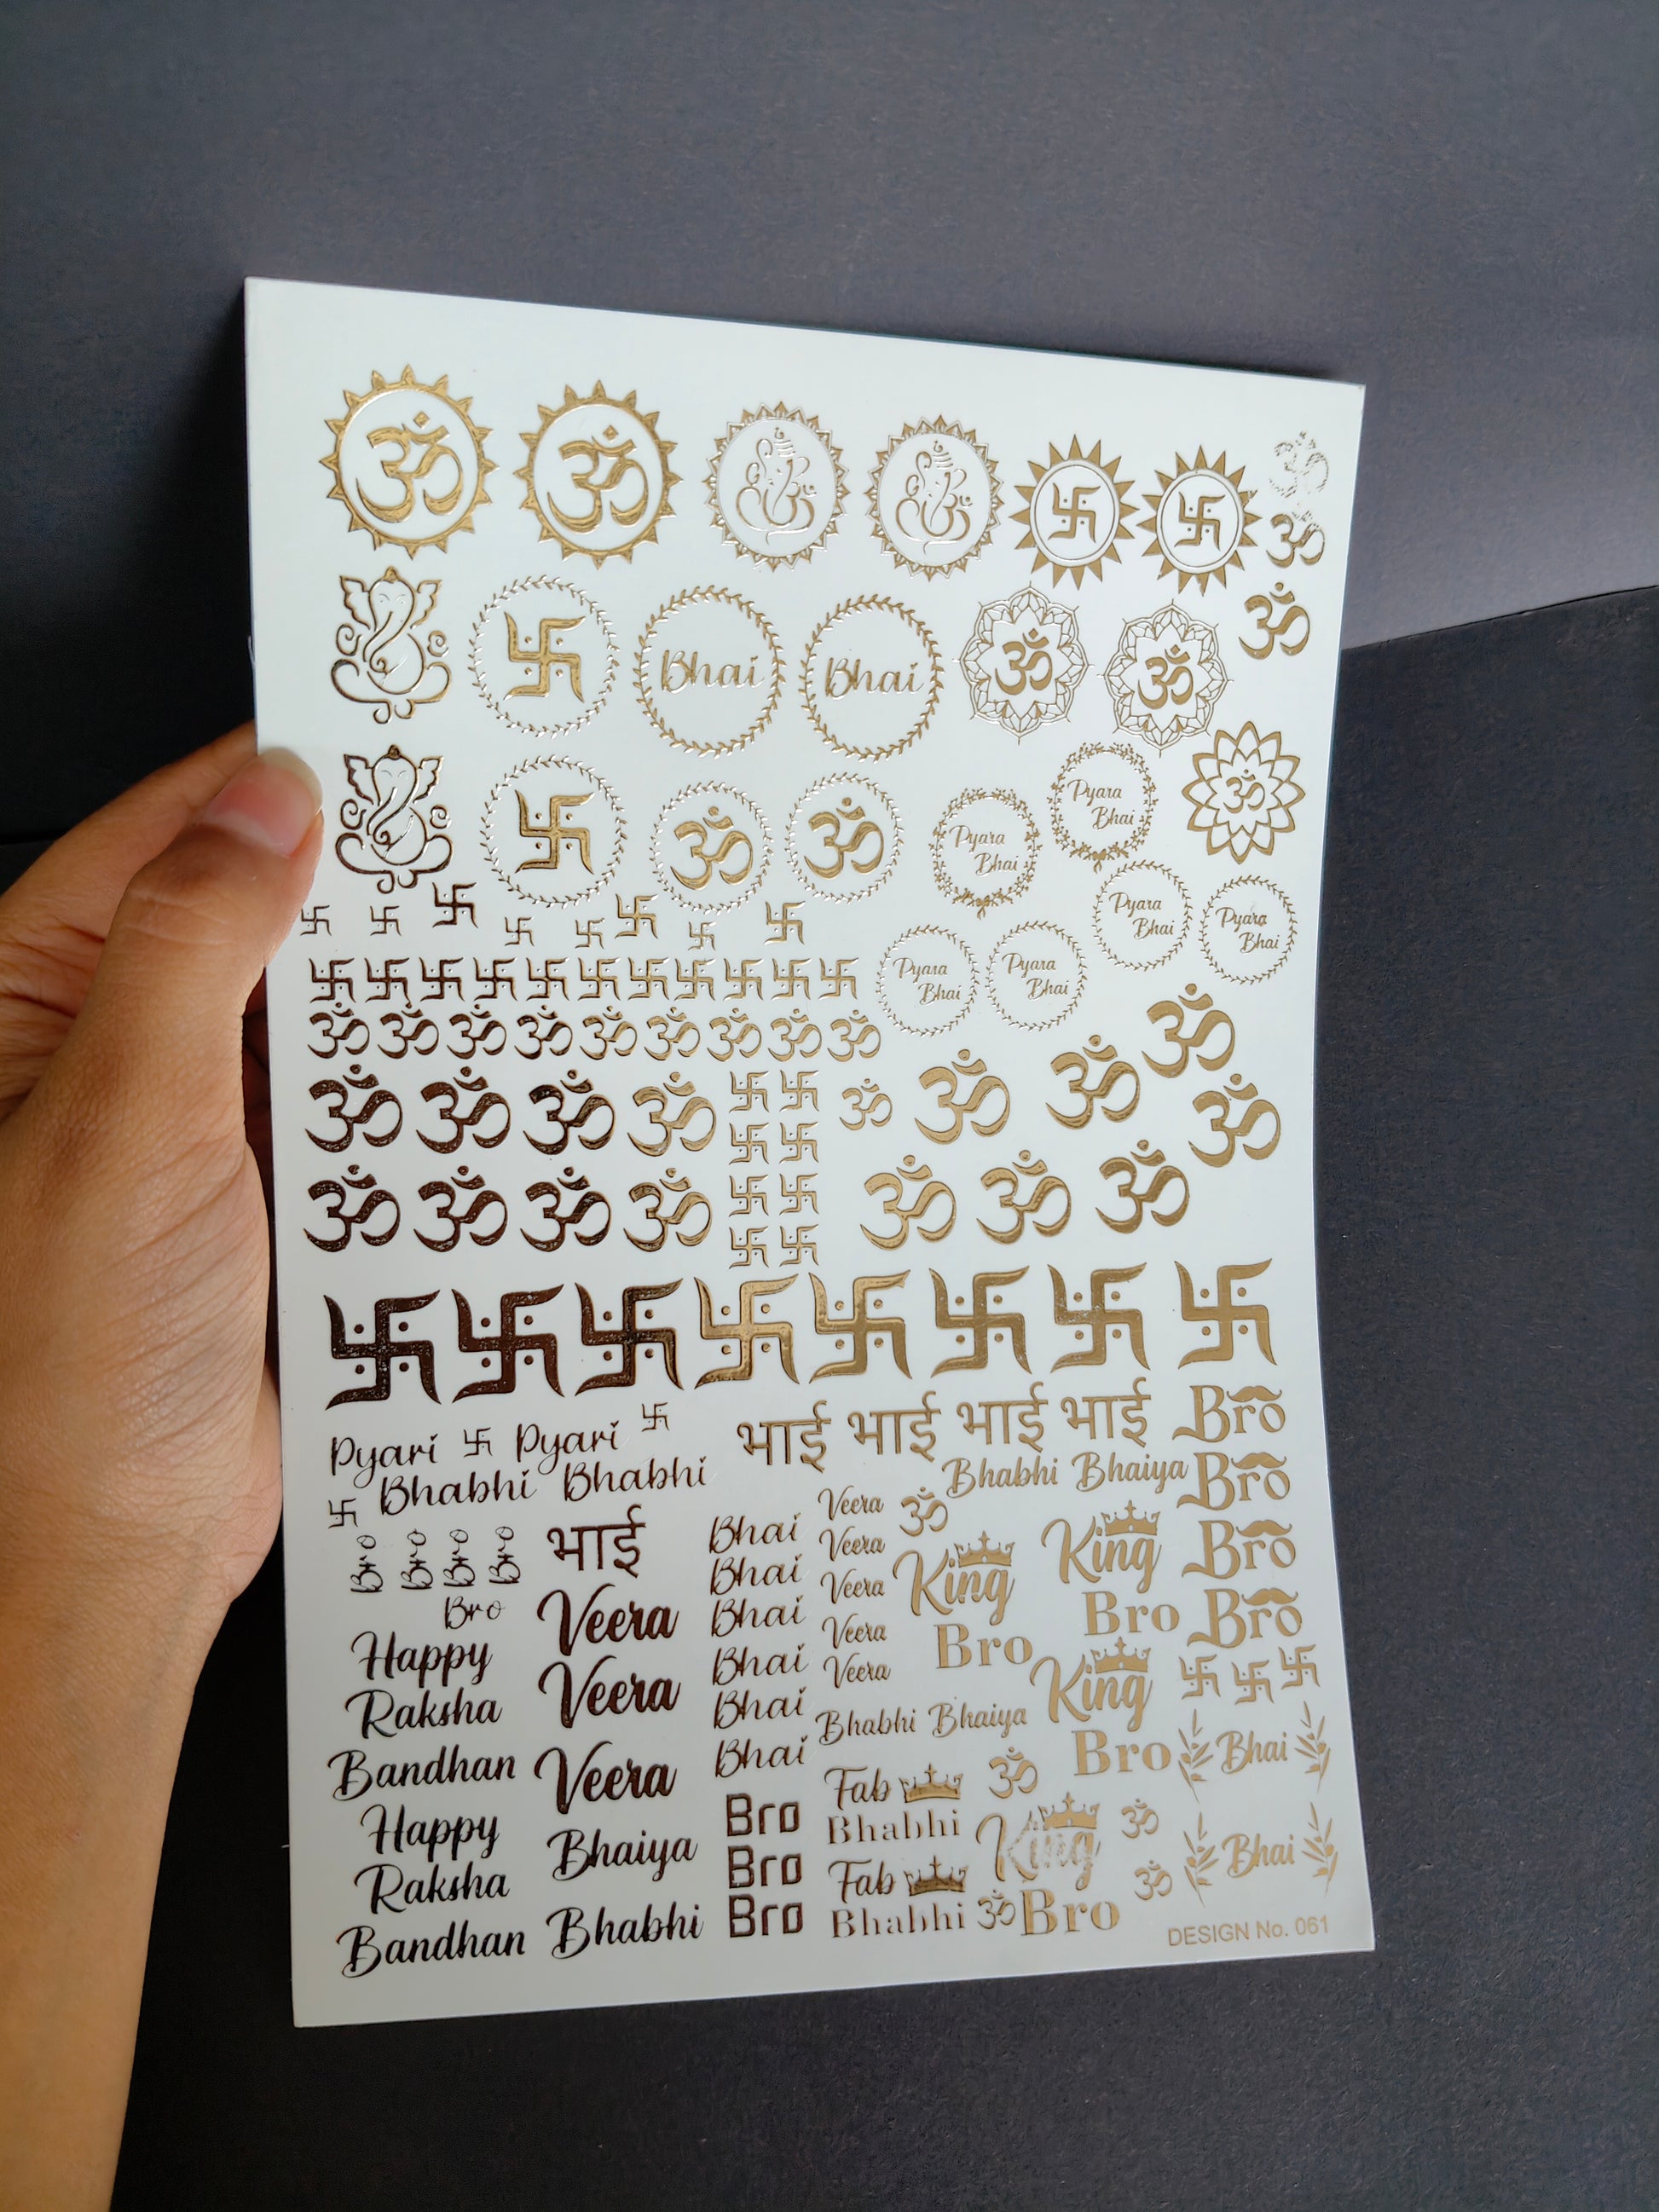 ॐ ॐ
ॐ
ॐ
ॐ
Bhai Bhai ॐ ॐ
ॐ ॐ Pyara Bhai Pyara Bhai ॐ
Pyara Bhai Pyara Bhai
Pyara Bhai Pyara Bhai
ॐ ॐ ॐ ॐ ॐ ॐ ॐ ॐ ॐ
ॐ ॐ ॐ ॐ ॐ ॐ ॐ ॐ ॐ
ॐ ॐ ॐ ॐ ॐ ॐ ॐ
Pyari Pyari
Bhabhi Bhabhi
भाई भाई भाई भाई
Bro
Bhabhi Bhaiya
Bro
Bro
Bro
Bro Bro Bro Bro
Bro
भाई
Happy
Raksha
Bandhan
Happy
Raksha
Bandhan
Veera
Veera
Veera
Bhaiya
Bhabhi
Bhai
Bhai
Bhai
Bhai
Bhai
Bhai
Bro
Bro
Bro
Veera
Veera
Veera
Veera
Veera
ॐ
King
King
Bro
Bro
King
Bhabhi Bhaiya
Bro
Bhai
Fab
Bhabhi
Fab
Bhabhi
ॐ
King
ॐ
ॐ
ॐ
Bro
Bhai
DESIGN No. 061